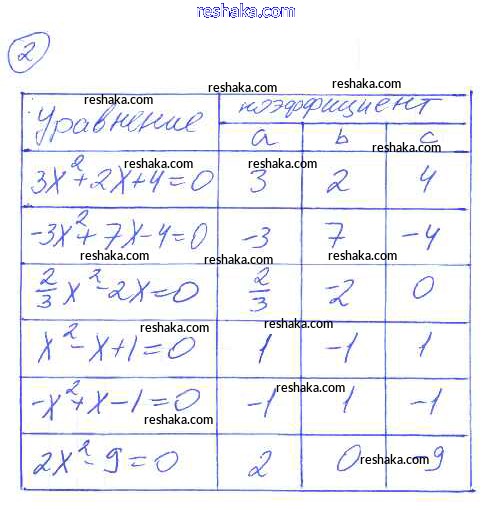 www.reshaka.com
2
reshaka.com
reshaka.com reshaka.com
Уравнение коэффициент
a b c
reshaka.com
reshaka.com
3x²+2x+4=0 3 2 4
reshaka.com
-3x²+7x-4=0 -3 7 -4
reshaka.com reshaka.com
2/3 x²-2x=0 2/3 -2 0
reshaka.com reshaka.com
x²-x+1=0 1 -1 1
reshaka.com
-x²+x-1=0 -1 1 -1
reshaka.com
2x²-9=0 2 0 -9
reshaka.com